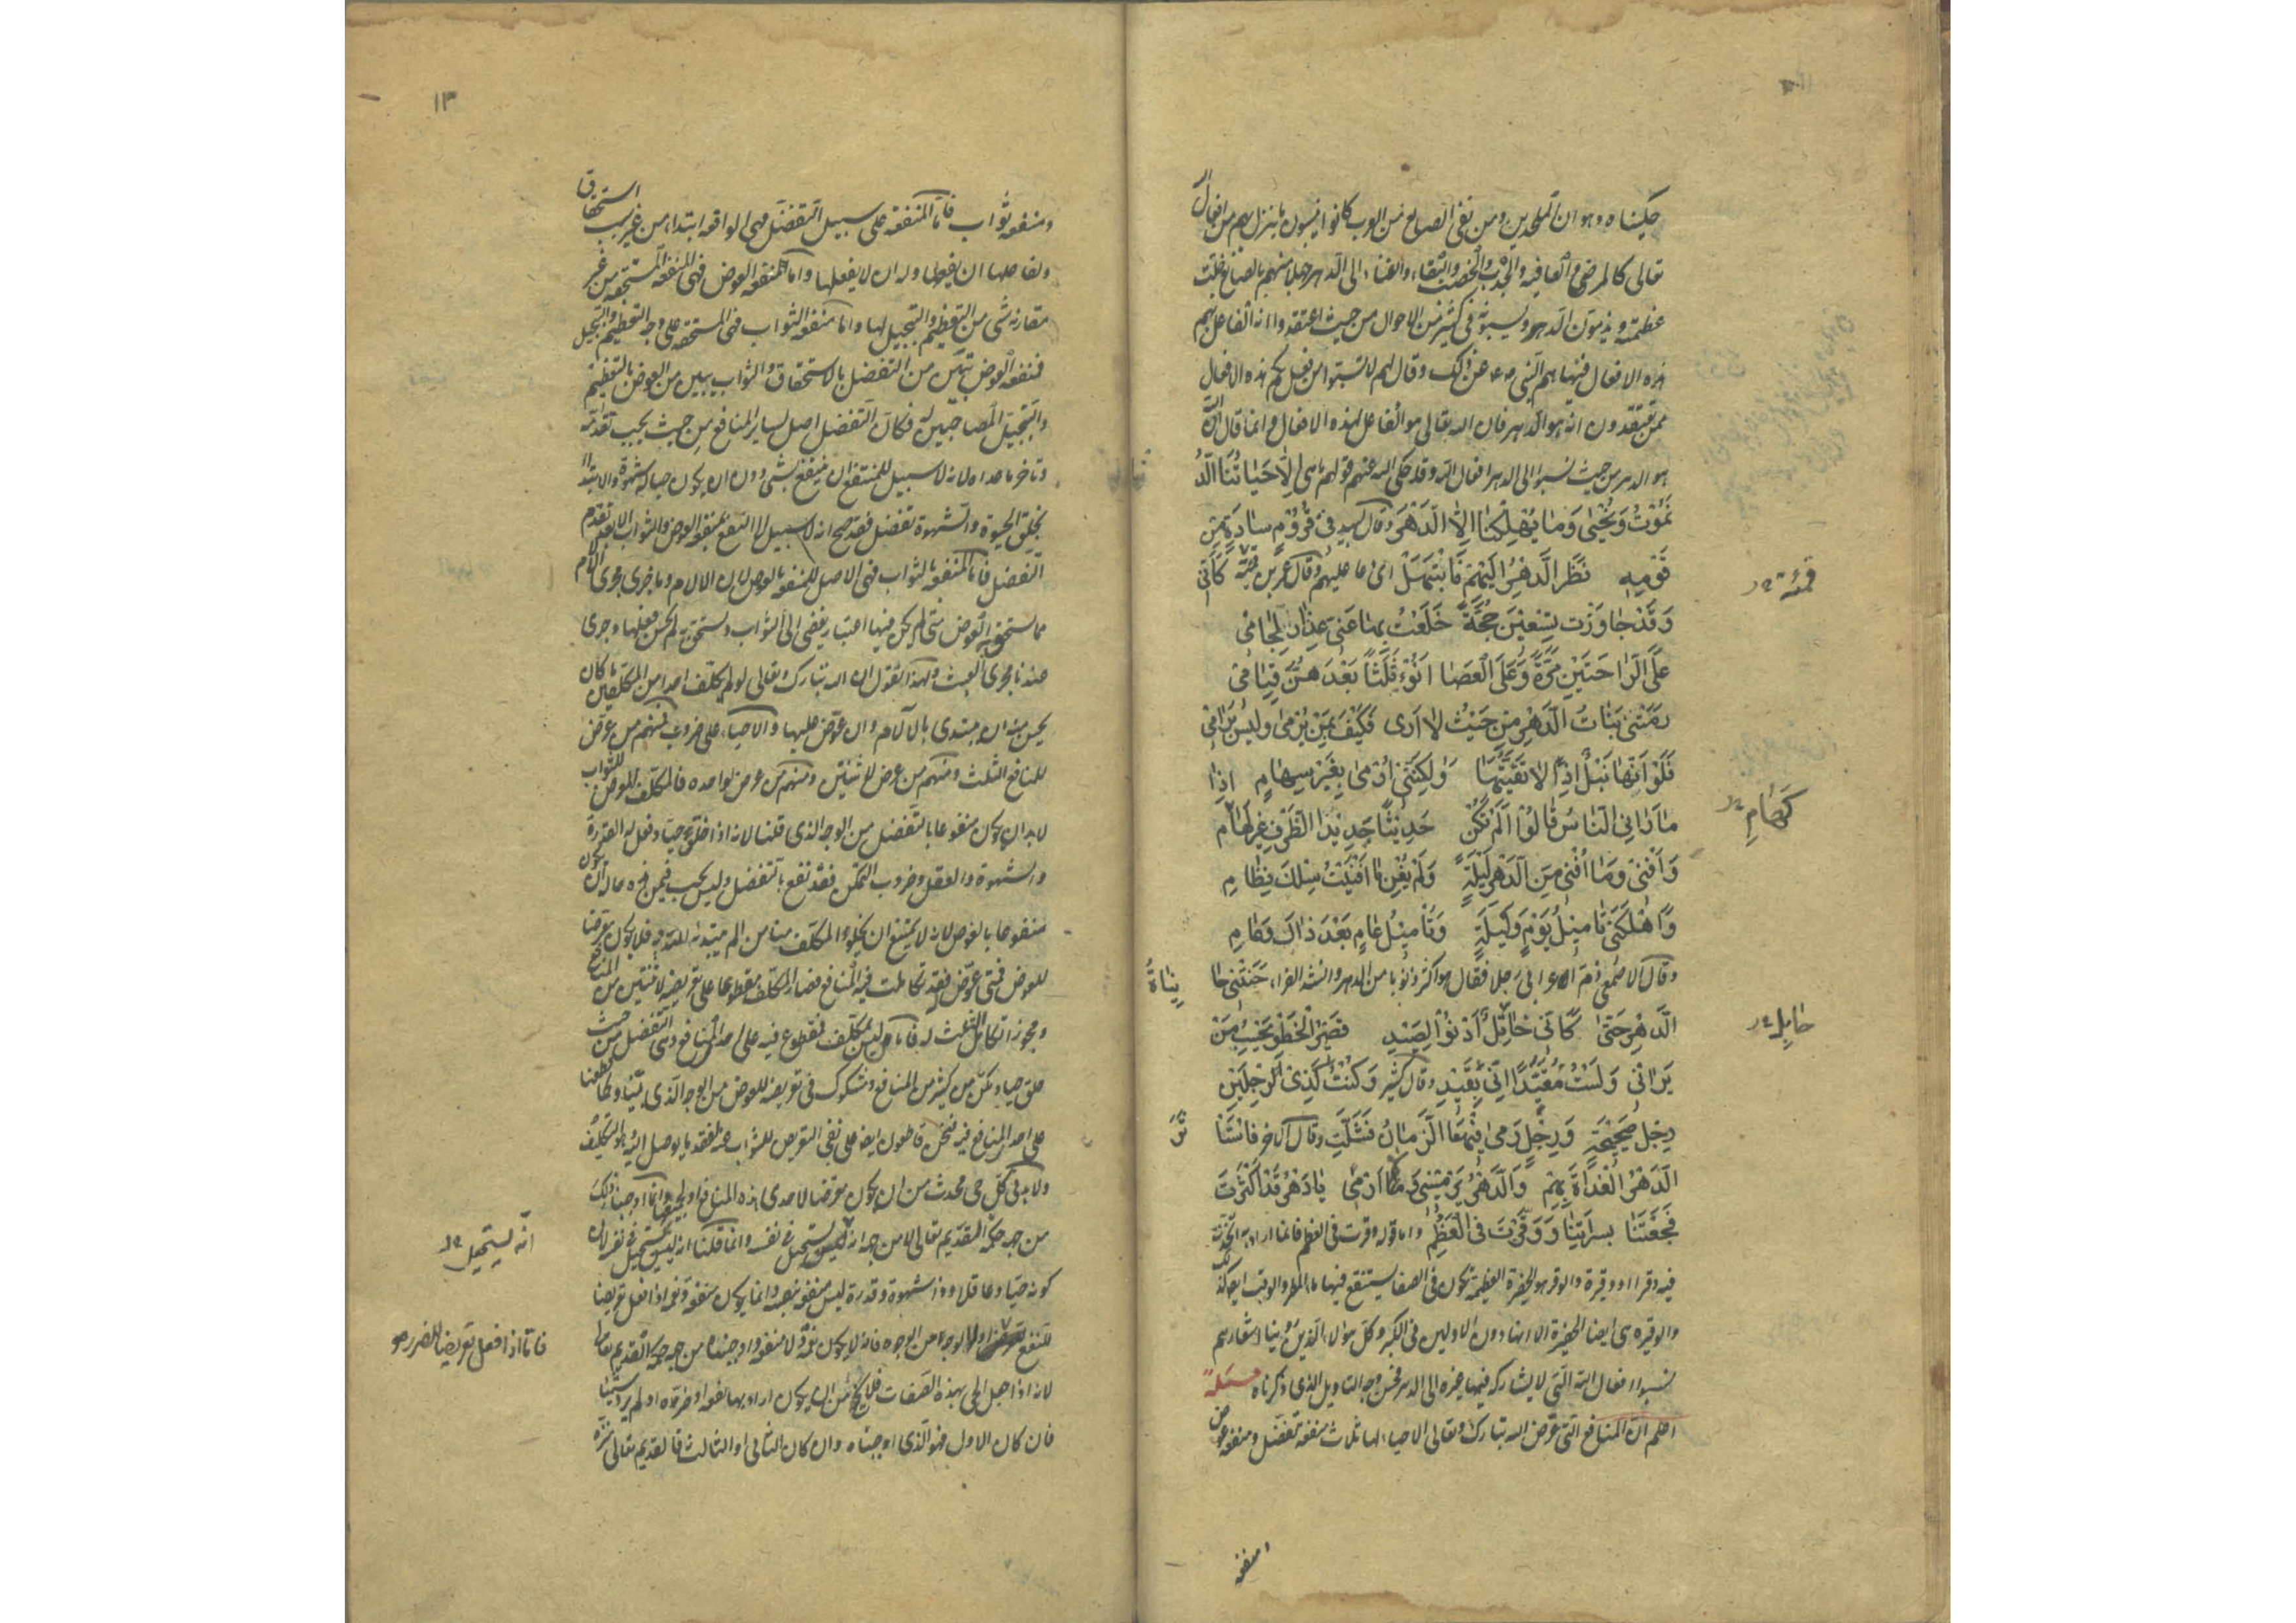 حكيناه وهو ان الملحدين ومن نفى الصانع من العرب كانوا ينسبون ما ينزل بهم من افعال الله
تعالى كالمرض والعافية والجدب والخصب والبقاء والفناء الى الدهر جهلا منهم بالصانع جلت
عظمته ويذمون الدهر ويسبونه في كثير من الاحوال من حيث اعتقدوا انه الفاعل بهم
هذه الافعال فنهاهم النبي ص ع عن ذلك وقال لهم لا تسبوا من فعل بكم هذه الافعال
ممن تعتقدون انه هو الدهر فان الله تعالى هو الفاعل لهذه الافعال وانما قال ان الله
هو الدهر من حيث نسبوا الى الدهر افعال الله وقد حكى الله عنهم قولهم ما هي الا حَيَاتُنَا الدُّ
نَمُوْتُ وَنَحْيٰى وَمَا يُهْلِكُنَا اِلَّا الدَّهْرُ وقال لبيد فِي قُرُوْمٍ سَادَةٍ مِنْ
قَوْمِهِ نَظَرَ الدَّهْرُ اِلَيْهِمْ فَابْتَهَلْ اي دعا عليهم وقال عمرو بن قميئة كَاَنِّي
وَقَدْ جَاوَزْتُ تِسْعِيْنَ حِجَّةً خَلَعْتُ بِهَا عَنِّي عِذَارَ لِجَامِي
عَلَى الرَّاحَتَيْنِ مَرَّةً وَعَلَى الْعَصَا اَنُوْءُ ثَلٰثًا بَعْدَهُنَّ قِيَامِي
رَمَتْنِي بَنَاتُ الدَّهْرِ مِنْ حَيْثُ لَا اَرٰى فَكَيْفَ بِمَنْ يُرْمٰى وَلَيْسَ بِرَامِي
فَلَوْ اَنَّهَا نَبْلٌ اِذًا لَاتَّقَيْتُهَا وَلٰكِنَّنِي اُرْمٰى بِغَيْرِ سِهَامٍ اِذَا
مَا رَاٰنِي النَّاسُ قَالُوْا اَلَمْ تَكُنْ حَدِيْثًا جَدِيْدَ الطَّرْفِ غَيْرَ كَهَامِ
وَاَفْنٰى وَمَا اُفْنِي مِنَ الدَّهْرِ لَيْلَةً وَلَمْ يُغْنِ مَا اَفْنَيْتُ سِلْكَ نِظَامِ
وَاَهْلَكَنِي تَامِيْلُ يَوْمٍ وَلَيْلَةٍ وَتَامِيْلُ عَامٍ بَعْدَ ذَاكَ وَعَامِ
وقال الاصمعي ذم اعرابي رجلا فقال هو اكثر ذنوبا من الدهر وانشد الفراء حَنَتْنِي حَا
الدَّهْرِ حَتّٰى كَاَنِّي خَاتِلٌ اَدْنُوْ لِصَيْدِ قَصِيْرُ الْخَطْوِ يَحْسِبُ مَنْ
يَرَانِي وَلَسْتُ مُقَيَّدًا اَنِّي بِقَيْدِ وقال كثير وَكُنْتُ كَذِي رِجْلَيْنِ
رِجْلٍ صَحِيْحَةٍ وَرِجْلٍ رَمٰى فِيْهَا الزَّمَانُ فَشَلَّتِ وقال الاخر فَاسْتَا
الدَّهْرُ الْغَدَاةَ بِهِمْ وَالدَّهْرُ يَرْمِيْنِي وَمَا اَرْمِي يَا دَهْرُ قَدْ اَكْثَرْتَ
فَجَعْتَنَا بِسَرَاتِنَا وَوَقَرْتَ فِي الْعَظْمِ واما قوله وقرت في العظم فانما اراد به اتخذت
فيه وقرا او وقيرة والوقر هو الحفرة العظيمة تكون في الصفا يستنقع فيها ماء المطر والوقب ايضا كذلك
والوقيرة هي ايضا الحفرة الا انها دون الاولين في الكبر وكل هؤلاء الذين روينا اشعارهم
نسبوا افعال الله التي لا يشاركه فيها غيره الى الدهر فحسن وجه التاويل الذي ذكرناه مسئلة
اعلم ان المنافع التي عرض الله تبارك وتعالى الاحياء لها ثلاث منفعة تفضل ومنفعة عوض
ومنفعة
قميئة
كهام
نِيَاةُ
خابل
ثَرَ
١٣
ومنفعة ثواب فاما المنفعة على سبيل التفضل فهي الواقعة ابتداء من غير سبب استحقاق
ولفاعلها ان يفعلها وله ان لا يفعلها واما المنفعة العوض فهي المنفعة المستحقة من غير
مقارنة شيء من التعظيم والتبجيل لها واما منفعة الثواب فهي المستحقة على وجه التعظيم والتبجيل
فمنفعة العوض تبين من التفضل بالاستحقاق والثواب يبين من العوض بالتعظيم
والتبجيل المصاحبين له فكان التفضل اصل لساير المنافع من حيث يجب تقدمه
وتاخر ما عداه لانه لا سبيل للمنتفع ان ينتفع بشيء دون ان يكون حيا له شهوة والابتداء
بخلق الحيوة والشهوة تفضل فقد صح انه لا سبيل الى النفع بمنفعة العوض والثواب الا بعد تقدم
التفضل فاما المنفعة بالثواب فهي الاصل للمنفعة بالعوض لان الالام وما جرى مجرى الالام
مما يستحق به العوض متى لم يكن فيها اعتبار يفضي الى الثواب ويستحق به لم يحسن فعلها وجرى
عندنا مجرى العبث ولهذا نقول ان الله تبارك وتعالى لو لم يكلف احدا من المكلفين ما كان
يحسن منه ان يبتدي بالالام وان عوض عليها والاحياء على ضروب فمنهم من عرض
للمنافع الثلث ومنهم من عرض لاثنتين ومنهم من عرض لواحدة فالمكلف المعرض للثواب
لا بد ان يكون منفوعا بالتفضل من الوجه الذي قلنا لانه اذا خلق حيا وفعل له القدرة
والشهوة والعقل وضروب التمكن فقد نفع بالتفضل وليس يجب فيمن هذه حاله ان يكون
منفوعا بالعوض لانه لا يمتنع ان يخلو المكلف منا من الم يبتدئه الله به فلا يكون معرضا
للعوض فمتى عوض فقد تكاملت فيه المنافع فصار المكلف مقطوعا على تعريضه لاثنتين من المنافع
ومجوز تكامل الثلث له فاما من ليس بمكلف فمقطوع فيه على احد المنافع وهي التفضل من حيث
خلق حيا ومكن من كثير من المنافع ومشكوك في تعريضه للعوض من الوجه الذي بينا وكما قطعنا
على احد المنافع فيه فنحن قاطعون ايضا على نفي التعريض للثواب عنه لفقد ما يوصل اليه وهو التكليف
ولا بد في كل حي محدث من ان يكون معرضا لاحدى هذه المنافع او لجميعها وانما اوجبنا ذلك
من جهة حكمة القديم تعالى لا من جهة انه ليس يستحيل في نفسه وانما قلنا انه ليس بمستحيل في نفسه لان
كونه حيا وعاقلا وذا شهوة وقدرة ليس منفعة بنفسه وانما يكون منفعة ونعمة اذا فعل تعريضا
للنفع ولا لوجه من الوجوه فانه لا يكون نعمة ولا منفعة واوجبناه من جهة حكمة القديم تعالى
لانه اذا جعل الحي بهذه الصفات فلا يخلو من ان يكون اراد بها نفعه او ضرره او لم يرد شيئا
فان كان الاول فهو الذي اوجبناه وان كان الثاني او الثالث فالقديم تعالى منزه
انه يستحيل
فاما اذا فعل تعريضا للضرر هو